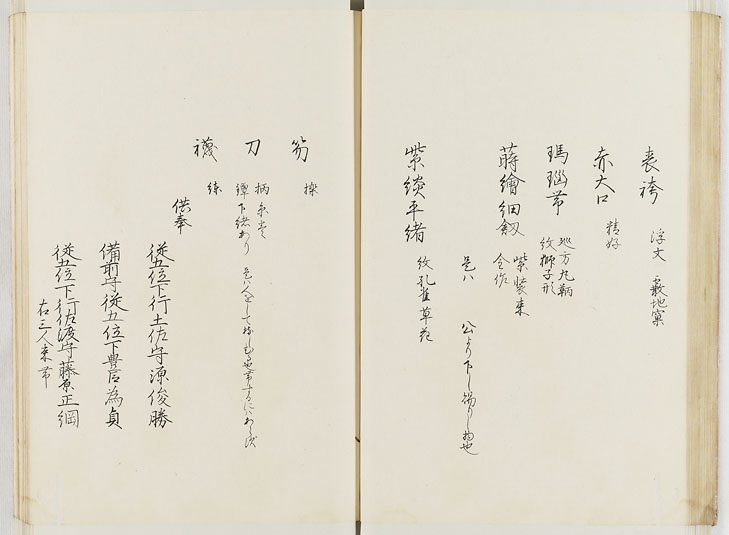 表袴 浮文 藪地窠
赤大口 精好
瑪瑙帯 巡方丸鞆
紋獅子形
蒔繪細劔 紫装束
金作
是ハ 公より下し賜りし物也
紫綾平緒 紋孔雀草花
笏 櫟
刀 柄糸巻
鐔下緒あり
襪 練
供奉
従五位下行土佐守源俊勝
備前守従五位下豊臣為貞
従五位下行佐渡守藤原正綱
右三人束帯